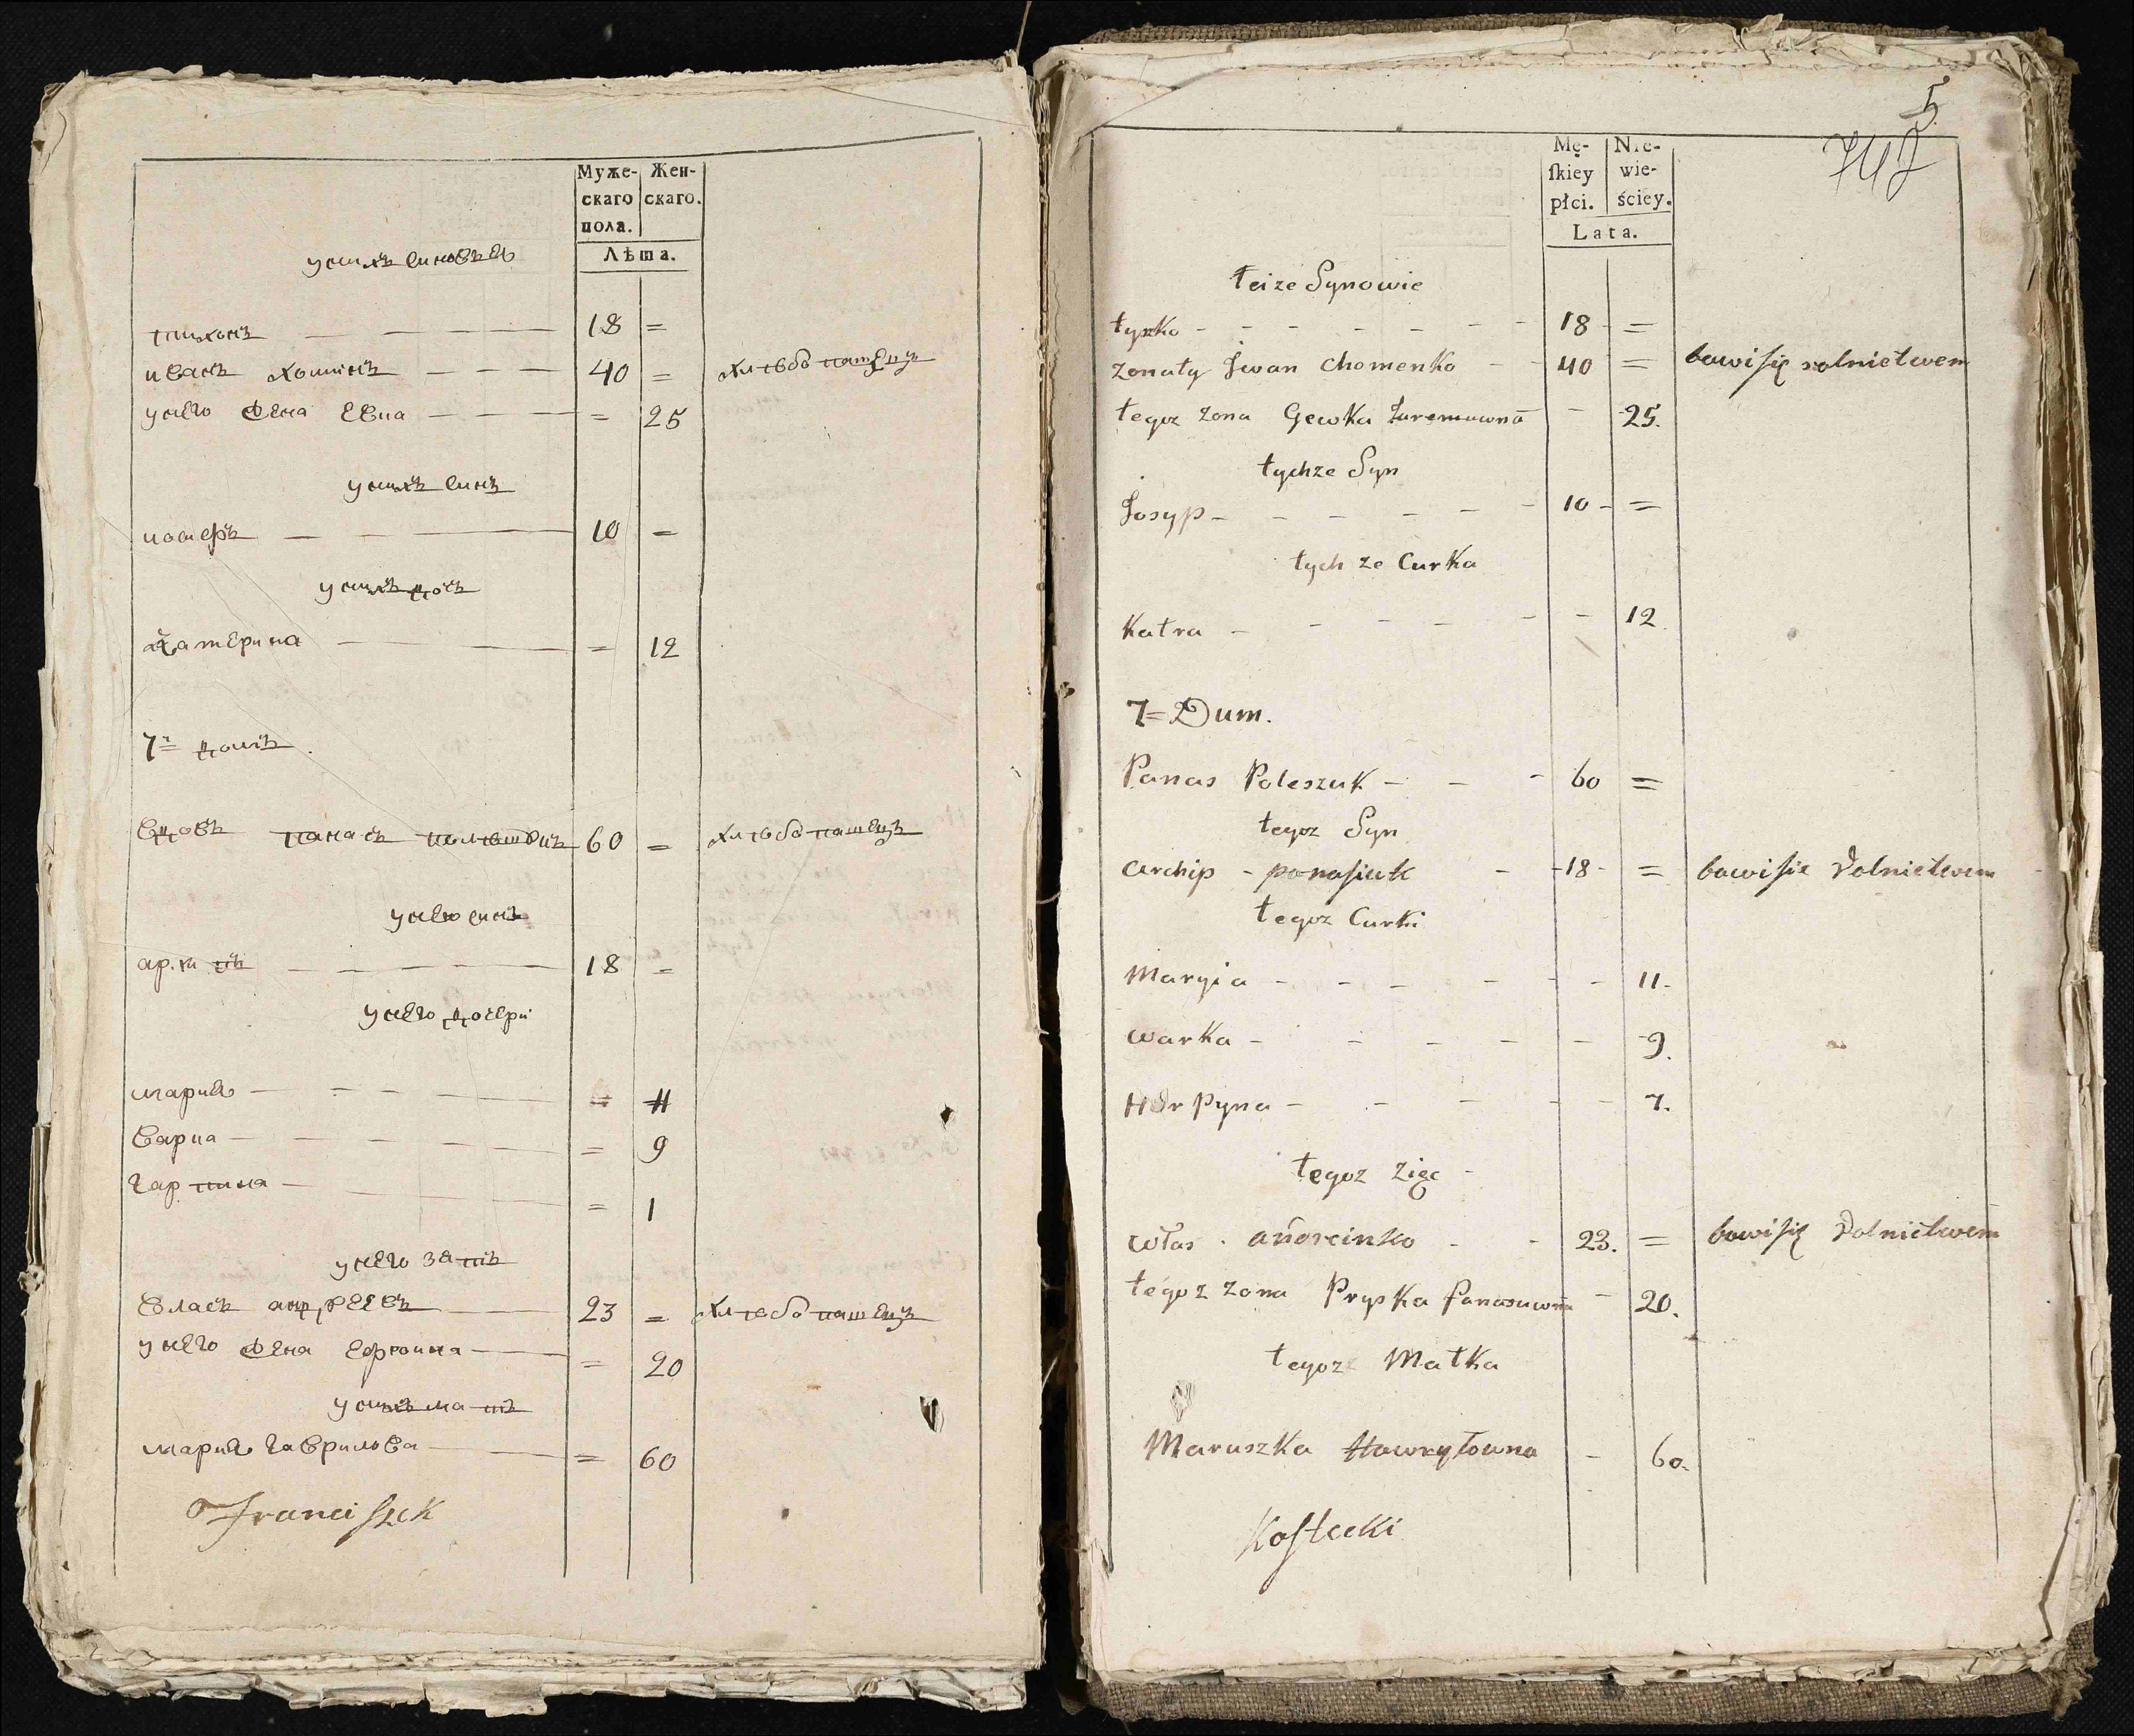 Муже-
скаго
пола.
Жен-
скаго.
Лѣта.
у нихъ синовья
тихонъ — — — — 18 =
иванъ хоминъ — — — 40 = хлѣбопашецъ
унего жена Евпа — — — = 25
унихъ синъ
иосифъ — — — 10 =
унихъ дочъ
катерина — — — = 12
7й домъ.
вдовъ панасъ полѣшукъ 60 = хлѣбопашецъ
унего синъ
архипъ — — — — 18 =
унего дочери
мария — — — — = 11
варка — — — — = 9
гарпина — — — = 1
унего зять
власъ андрѣевъ — 23 = хлѣбопашецъ
унего жена — = 20
унихъ мать
мария гаврилова — = 60
Franciszek
5
Mę-
ſkiey
płci.
Nie-
wie-
ściey.
Lata.
teize Synowie
tyszko - - - - - - - 18 - =
zonaty Jwan Chomenko - - 40 = bawi się rolnictwem
tegoz zona Gewka - 25.
tychze Syn
Josyp - - - - - - 10 - =
tych ze Curka
Katra - - - - - - 12.
7= Dum.
Panas Poleszuk - - - 60 =
tegoz Syn
Archip - panasiuk - - 18 - = bawi sie Rolnictwem
tegoz Curki
Maryia - - - - - - 11.
Warka - - - - - - 9.
Horpyna - - - - - 7.
tegoz Zięc -
Włas - - 23. = bawi się Rolnictwem
tegoz zona Pryska Panasuwna - 20.
tegoz Matka
Maruszka Hawryłowna - 60.
Kostecki